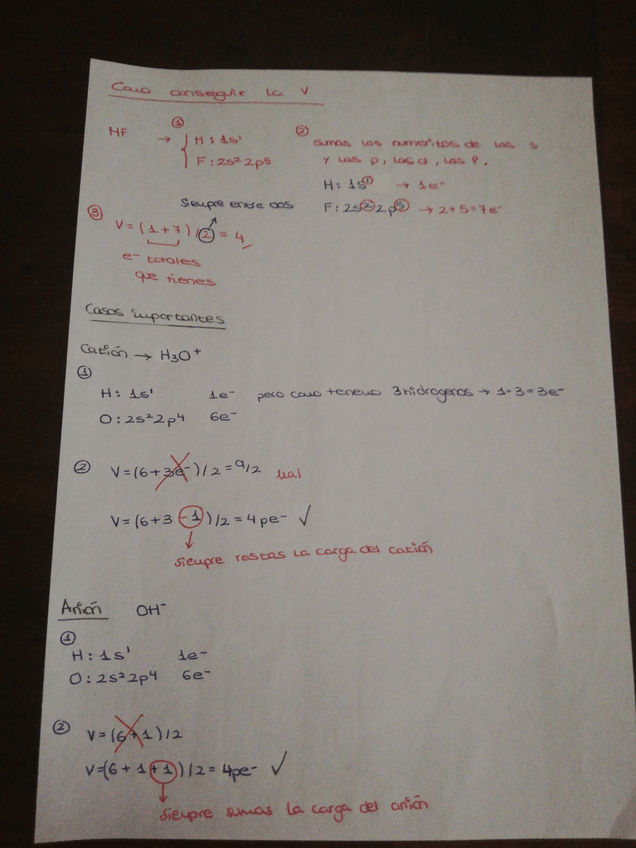 Como conseguir la V
HF → ① H : 1s¹
F : 2s² 2p5
② sumas los numeritos de las s
y las p, las d, las f.
H : 1s① → 1e⁻
F : 2s② 2p⑤ → 2+5=7e⁻
Siempre entre dos
③ V = (1+7) / 2 = 4
e⁻ totales
que tienes
Casos importantes
Catión → H₃O⁺
①
H : 1s¹ 1e⁻ pero como tenemo 3 hidrogenos → 1·3=3e⁻
O : 2s² 2p4 6e⁻
② V = (6 + 3e⁻) / 2 = 9/2 mal
V = (6 + 3 -1) / 2 = 4 pe⁻ ✓
siempre restas la carga del catión
Anión OH⁻
①
H : 1s¹ 1e⁻
O : 2s² 2p4 6e⁻
② V = (6 + 1) / 2
V=(6 + 1 +1) / 2 = 4pe⁻ ✓
siempre sumas la carga del anión